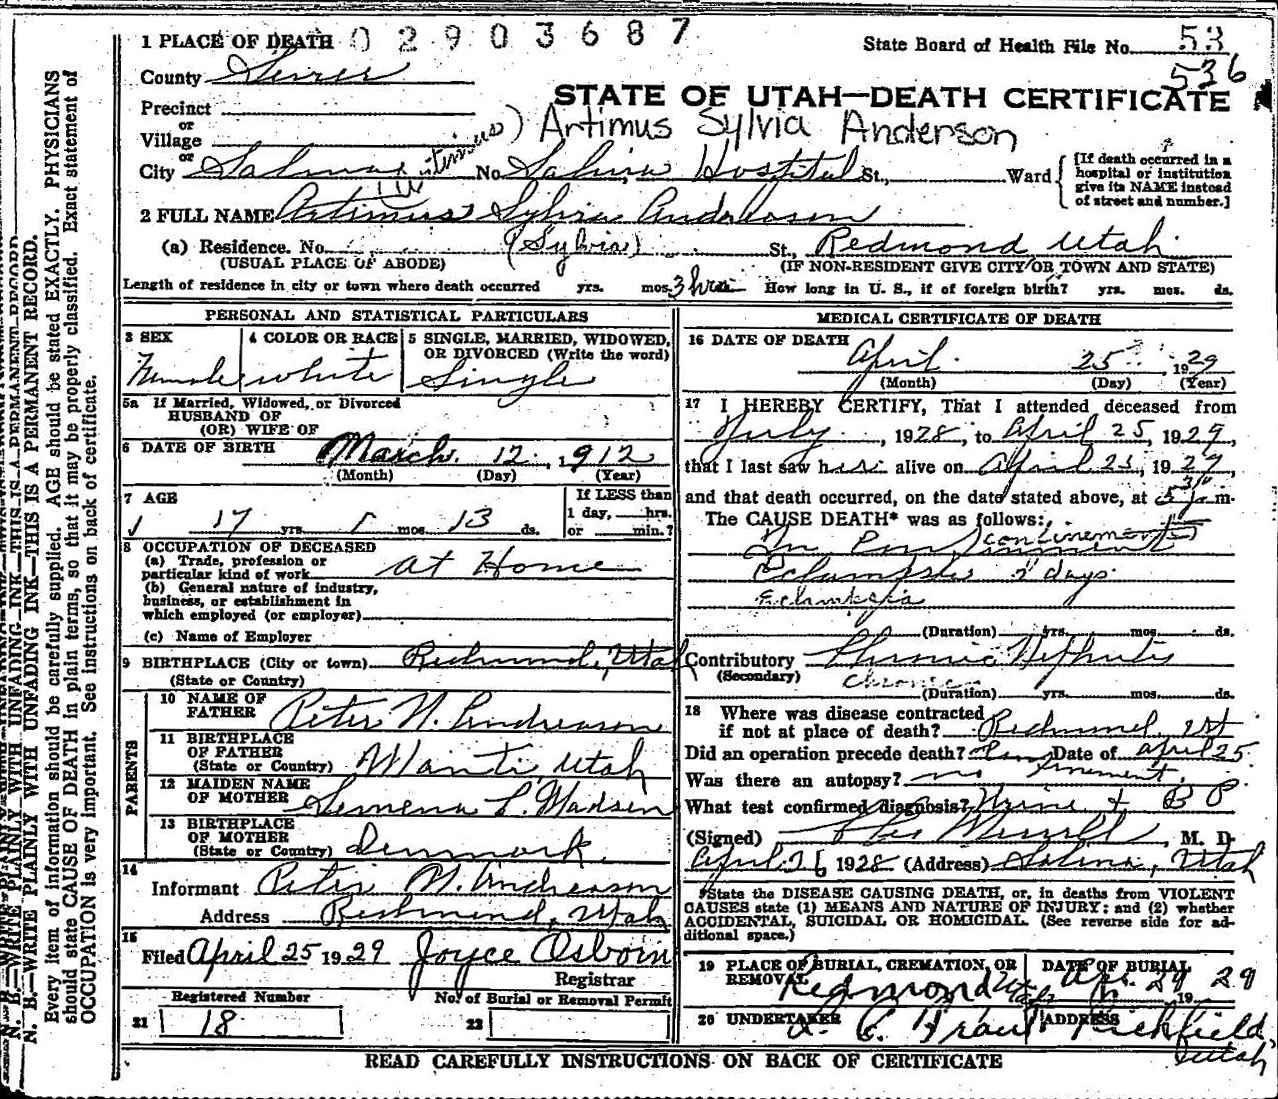 1 PLACE OF DEATH 02903687
State Board of Health File No. 53
536
County Sevier
STATE OF UTAH—DEATH CERTIFICATE
Precinct
or
Village
Artimus Sylvia Anderson
or
City Salina No. Salina, Hospital St., Ward
[If death occurred in a hospital or institution give its NAME instead of street and number.]
2 FULL NAME Artimus Sylvia
(a) Residence. No. (Sylvia) St., Redmond Utah
(USUAL PLACE OF ABODE) (IF NON-RESIDENT GIVE CITY OR TOWN AND STATE)
Length of residence in city or town where death occurred yrs. mos. 3 hrs How long in U. S., if of foreign birth? yrs. mos. ds.
PERSONAL AND STATISTICAL PARTICULARS
3 SEX 4 COLOR OR RACE 5 SINGLE, MARRIED, WIDOWED, OR DIVORCED (Write the word)
Female white Single
5a If Married, Widowed, or Divorced
HUSBAND OF
(OR) WIFE OF
6 DATE OF BIRTH March 12, 1912
(Month) (Day) (Year)
7 AGE If LESS than
17 yrs. 1 mos. 13 ds. 1 day, hrs.
or min.?
8 OCCUPATION OF DECEASED
(a) Trade, profession or
particular kind of work at Home
(b) General nature of industry,
business, or establishment in
which employed (or employer)
(c) Name of Employer
9 BIRTHPLACE (City or town) Redmond, Utah
(State or Country)
PARENTS
10 NAME OF
FATHER Peter N. Andreason
11 BIRTHPLACE
OF FATHER
(State or Country) Manti, Utah
12 MAIDEN NAME
OF MOTHER L. Madsen
13 BIRTHPLACE
OF MOTHER
(State or Country) Denmark
14
Informant Peter N. Andreason
Address Redmond, Utah
15
Filed April 25 1929 Joyce Osborn
Registrar
Registered Number No. of Burial or Removal Permit
21 18 22
MEDICAL CERTIFICATE OF DEATH
16 DATE OF DEATH
April 25 1929
(Month) (Day) (Year)
17 I HEREBY CERTIFY, That I attended deceased from
July, 1928, to April 25, 1929,
that I last saw her alive on April 25, 1929,
and that death occurred, on the date stated above, at m.
The CAUSE DEATH* was as follows:
In confinement
Eclampsia 2 days
Eclampsia
(Duration) yrs. mos. ds.
Contributory Chronic Nephritis
(Secondary) chronic
(Duration) yrs. mos. ds.
18 Where was disease contracted
if not at place of death? Redmond, Ut
Did an operation precede death? Date of April 25
Was there an autopsy? no
What test confirmed diagnosis? Urine + B P
(Signed) Merrill M. D.
April 26 1928 (Address) Salina, Utah
*State the DISEASE CAUSING DEATH, or, in deaths from VIOLENT
CAUSES state (1) MEANS AND NATURE OF INJURY; and (2) whether
ACCIDENTAL, SUICIDAL OR HOMICIDAL. (See reverse side for ad-
ditional space.)
19 PLACE OF BURIAL, CREMATION, OR REMOVAL DATE OF BURIAL
Redmond Utah Apr. 29 1929
20 UNDERTAKER ADDRESS
Richfield,
Utah
READ CAREFULLY INSTRUCTIONS ON BACK OF CERTIFICATE
N. B.—WRITE PLAINLY WITH UNFADING INK—THIS IS A PERMANENT RECORD.
Every item of information should be carefully supplied. AGE should be stated EXACTLY. PHYSICIANS
should state CAUSE OF DEATH in plain terms, so that it may be properly classified. Exact statement of
OCCUPATION is very important. See instructions on back of certificate.